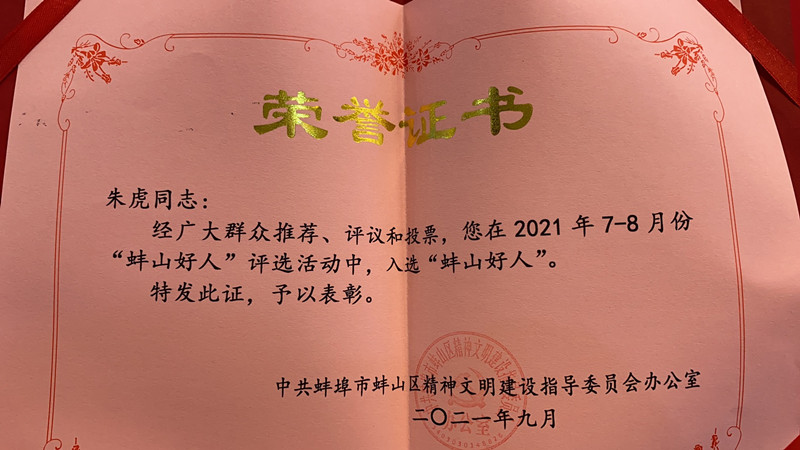 荣誉证书
朱虎同志：
经广大群众推荐、评议和投票，您在 2021 年 7-8 月份
“蚌山好人”评选活动中，入选“蚌山好人”。
特发此证，予以表彰。
中共蚌埠市蚌山区精神文明建设指导委员会办公室
二〇二一年九月